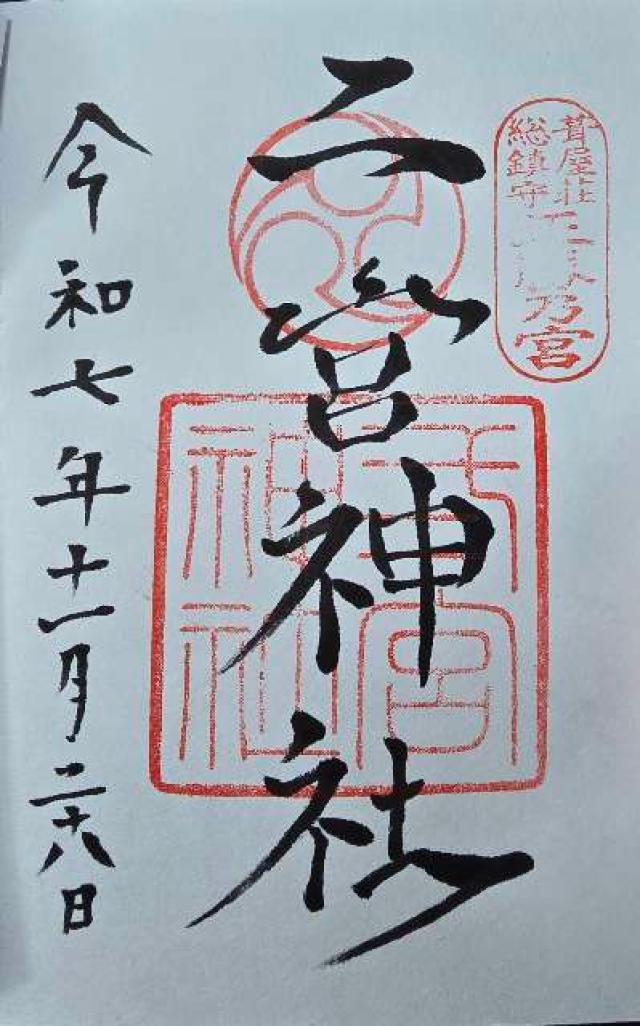 葺屋荘
総鎮守
乃宮
二宮神社
二宮神社
令和七年十一月二十八日